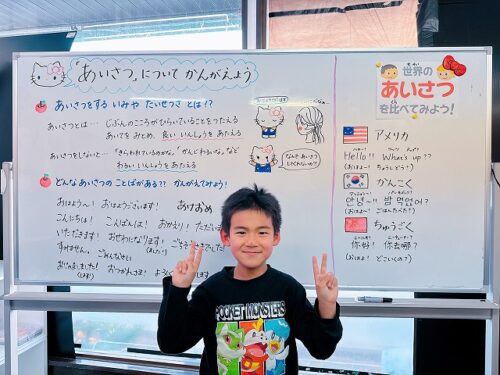 「あいさつ」について かんがえよう
あいさつをする いみや たいせつさ とは!?
あいさつとは… じぶんのこころがひらいていることをつたえる
あいてを みとめ、良い いんしょうを あたえる
あいさつをしないと…「きらわれているのかな」「かんじわるいな」など
わるい いんしょうを あたえる
どんな あいさつの ことばがある?? かんがえてみよう!
おはよう〜! おはようございます! あけおめ
こんにちは! こんばんは! おかえり! ただいま
いただきます! おせわになります! ごちそうさまでした!
すみません。 ごめんなさい
おじゃまします! おつかれさま!
なんで あいさつ
世界の
あいさつ
を比べてみよう!
アメリカ
Hello!! What's up??
かんこく
안녕!! 밥 먹었어?
(おはよ〜! ごはんたべた?)
ちゅうごく
你好! 你去哪?
(おはよ! どこいくの?)
POCKET MONSTERS